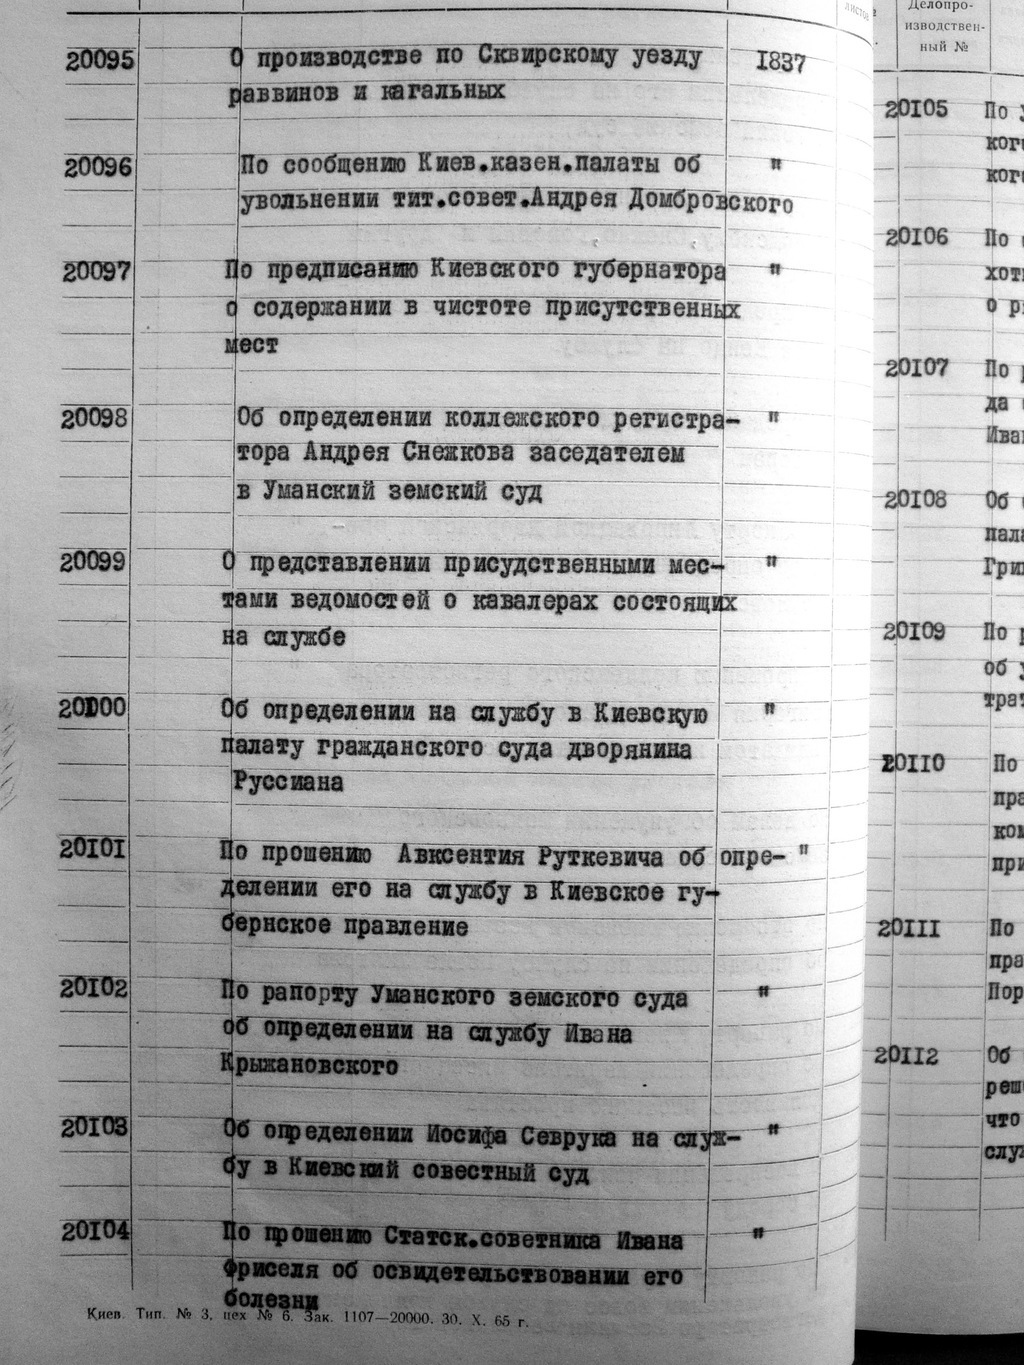 20095 О производстве по Сквирскому уезду 1837
раввинов и кагальных
20096 По сообщению Киев.казен.палаты об "
увольнении тит.совет.Андрея Домбровского
20097 По предписанию Киевского губернатора "
о содержании в чистоте присутственных
мест
20098 Об определении коллежского регистра- "
тора Андрея Снежкова заседателем
в Уманский земский суд
20099 О представлении присудственными мес- "
тами ведомостей о кавалерах состоящих
на службе
Об определении на службу в Киевскую "
палату гражданского суда дворянина
Руссиана
20101 По прошению Авксентия Руткевича об опре- "
делении его на службу в Киевское гу-
бернское правление
20102 По рапорту Уманского земского суда "
об определении на службу Ивана
Крыжановского
20103 Об определении Иосифа Севрука на служ- "
бу в Киевский совестный суд
20104 По прошению Статск.советника Ивана "
Фриселя об освидетельствовании его
болезни
Киев. Тип. № 3, цех № 6. Зак. 1107—20000. 30. X. 65 г.
листов
Делопро-
изводствен-
ный №
20105 По
20106 По
о
20107 По
да
20108 Об
20109 По
об
20110 По
20111 По
20112 Об
что